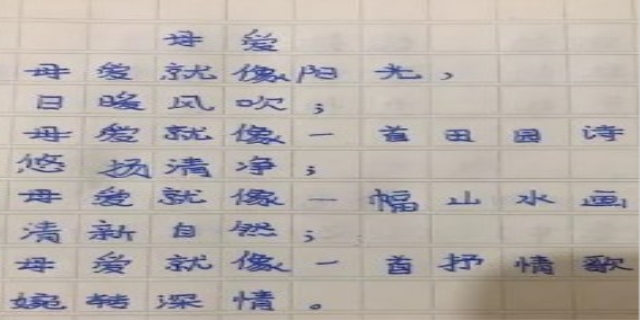 母爱
母爱就像阳光，
日暖风吹；
母爱就像一首田园诗
悠扬清净；
母爱就像一幅山水画
清新自然；
母爱就像一首抒情歌
婉转深情。